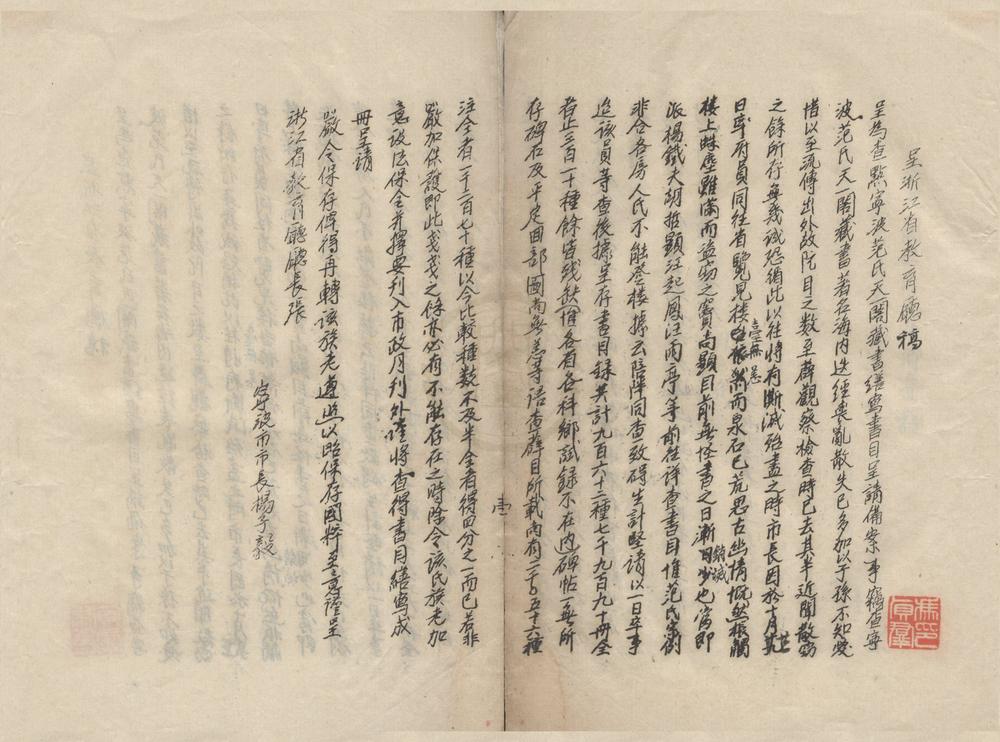 呈浙江省教育廳稿
呈為查點寧波范氏天一閣藏書繕寫書目呈請備案事竊查寧
波范氏天一閣藏書著名海内迭經喪亂散失已多加以子孫不知愛
惜以至流傳出外故阮目之數至薛觀察檢查時已去其半近聞散
之餘所存無幾誠恐循此以往將有澌滅殆盡之時市長因於十月廿
日率府員同往省覽見樓臺無恙而泉石已荒思古幽情慨然振觸
樓上蛛塵雖滿而盜竊之竇尚顯目前無怪書之日漸銷滅也當即
派楊鐵夫胡哲顯汪起鳳汪雨亭等前往詳查書目惟范氏
非合各房人民不能登樓據云陪伴同查致碍生計堅請以一日卒事
迨該員等查後據呈存書目録共計九百六十二種七千九百九十冊全
者止三百一十種餘皆殘缺惟各省各科鄉試録不在内碑帖無所
存碑石及平定回部圖尚無恙等語查薛目所載内有二千〇五十六種
注全者一千二百七十種以今比較種數不及半全者得四分之一而已若非
嚴加保護即此戔戔之餘亦必有不能存在之時除令該氏族老加
意設法保全并擇要刊入市政月刊外謹將查得書目繕寫成
冊呈請
嚴令保存俾得再轉該族老遵照以昭保存國粹至意謹呈
浙江省教育廳廳長張
寧波市市長楊子毅
壹